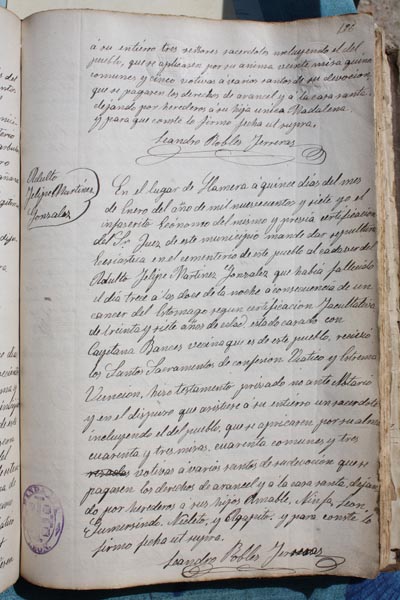 126
á su entierro tres señores sacerdotes incluyendo el del
pueblo, que se aplicasen por su anima veinte misas quince
comunes y cinco votivas á varios santos de su devocion,
que se pagasen los derechos de arancel y á la casa santa,
dejando por herederos á su hija unica Madalena.
Y para que conste lo firmo fecha ut supra.
Leandro Robles Ferreras
Adulto
Felipe Martinez
Gonzalez
En el lugar de Llamera á quince dias del mes
de Enero del año de mil nuevecientos y siete yo el
infrascrito Economo del mismo y previa certificacion
del Sr Juez de este municipio mande dar sepultura
Eclesiastica en el cementerio de este pueblo al cadaver del
Adulto Felipe Martinez Gonzalez que habia fallecido
el dia trece á las doce de la noche á consecuencia de un
cancer del Estomago segun certificacion Facultativa
de treinta y siete años de edad, estado casado con
Cayetana Bances vecina que es de este pueblo, recibió
los Santos Sacramentos de confesion Viatico y Extrema
Uncion, hizo testamento privado no ante Notario
y en el dispuso que asistiese á su entierro un sacerdote
incluyendo el del pueblo, que se aplicasen por su alma
cuarenta y tres misas, cuarenta comunes y tres
votivas á varios santos de su devoción que se
pagasen los derechos de arancel y á la casa santa, dejan
do por herederos a sus hijos Amable, Ninfa, Leon,
Gumersindo, Niceto, y Agapito, y para conste lo
firmo fecha ut supra.
Leandro Robles Ferreras